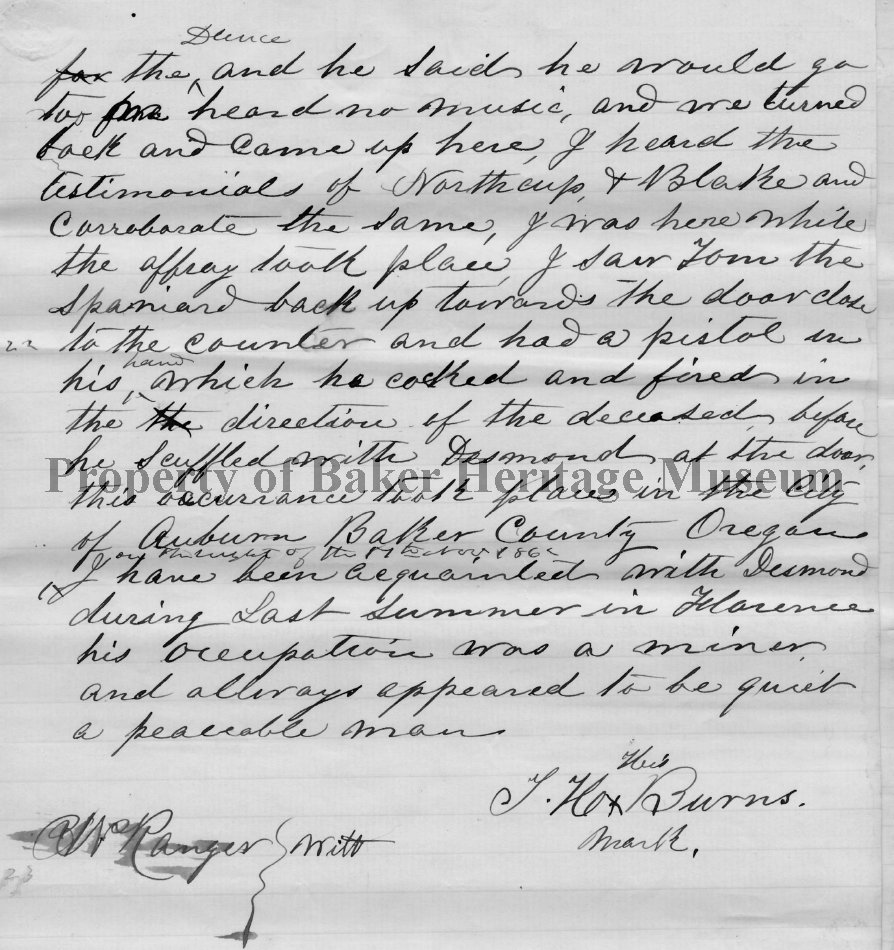 Dance
for the, and he said he would go
too heard no music, and we turned
back and came up here, I heard the
testimonials of Northcup, & Blake and
Corroborate the same, I was here while
the affray took place, I saw Tom the
Spaniard back up towards the door close
to the counter and had a pistol in
hand
his, which he cocked and fired in
the the direction of the deceased, before
he scuffled with Desmond at the door,
Property of Baker Heritage Museum
this occurrance took place in the City
of Auburn Baker County Oregon
on the night of the Nov 1862
I have been acquainted with Desmond
during Last Summer in Florence
his occupation was a miner
and allways appeared to be quiet
a peaceable man
His
T. H x Burns.
mark.
Ranger } Witt